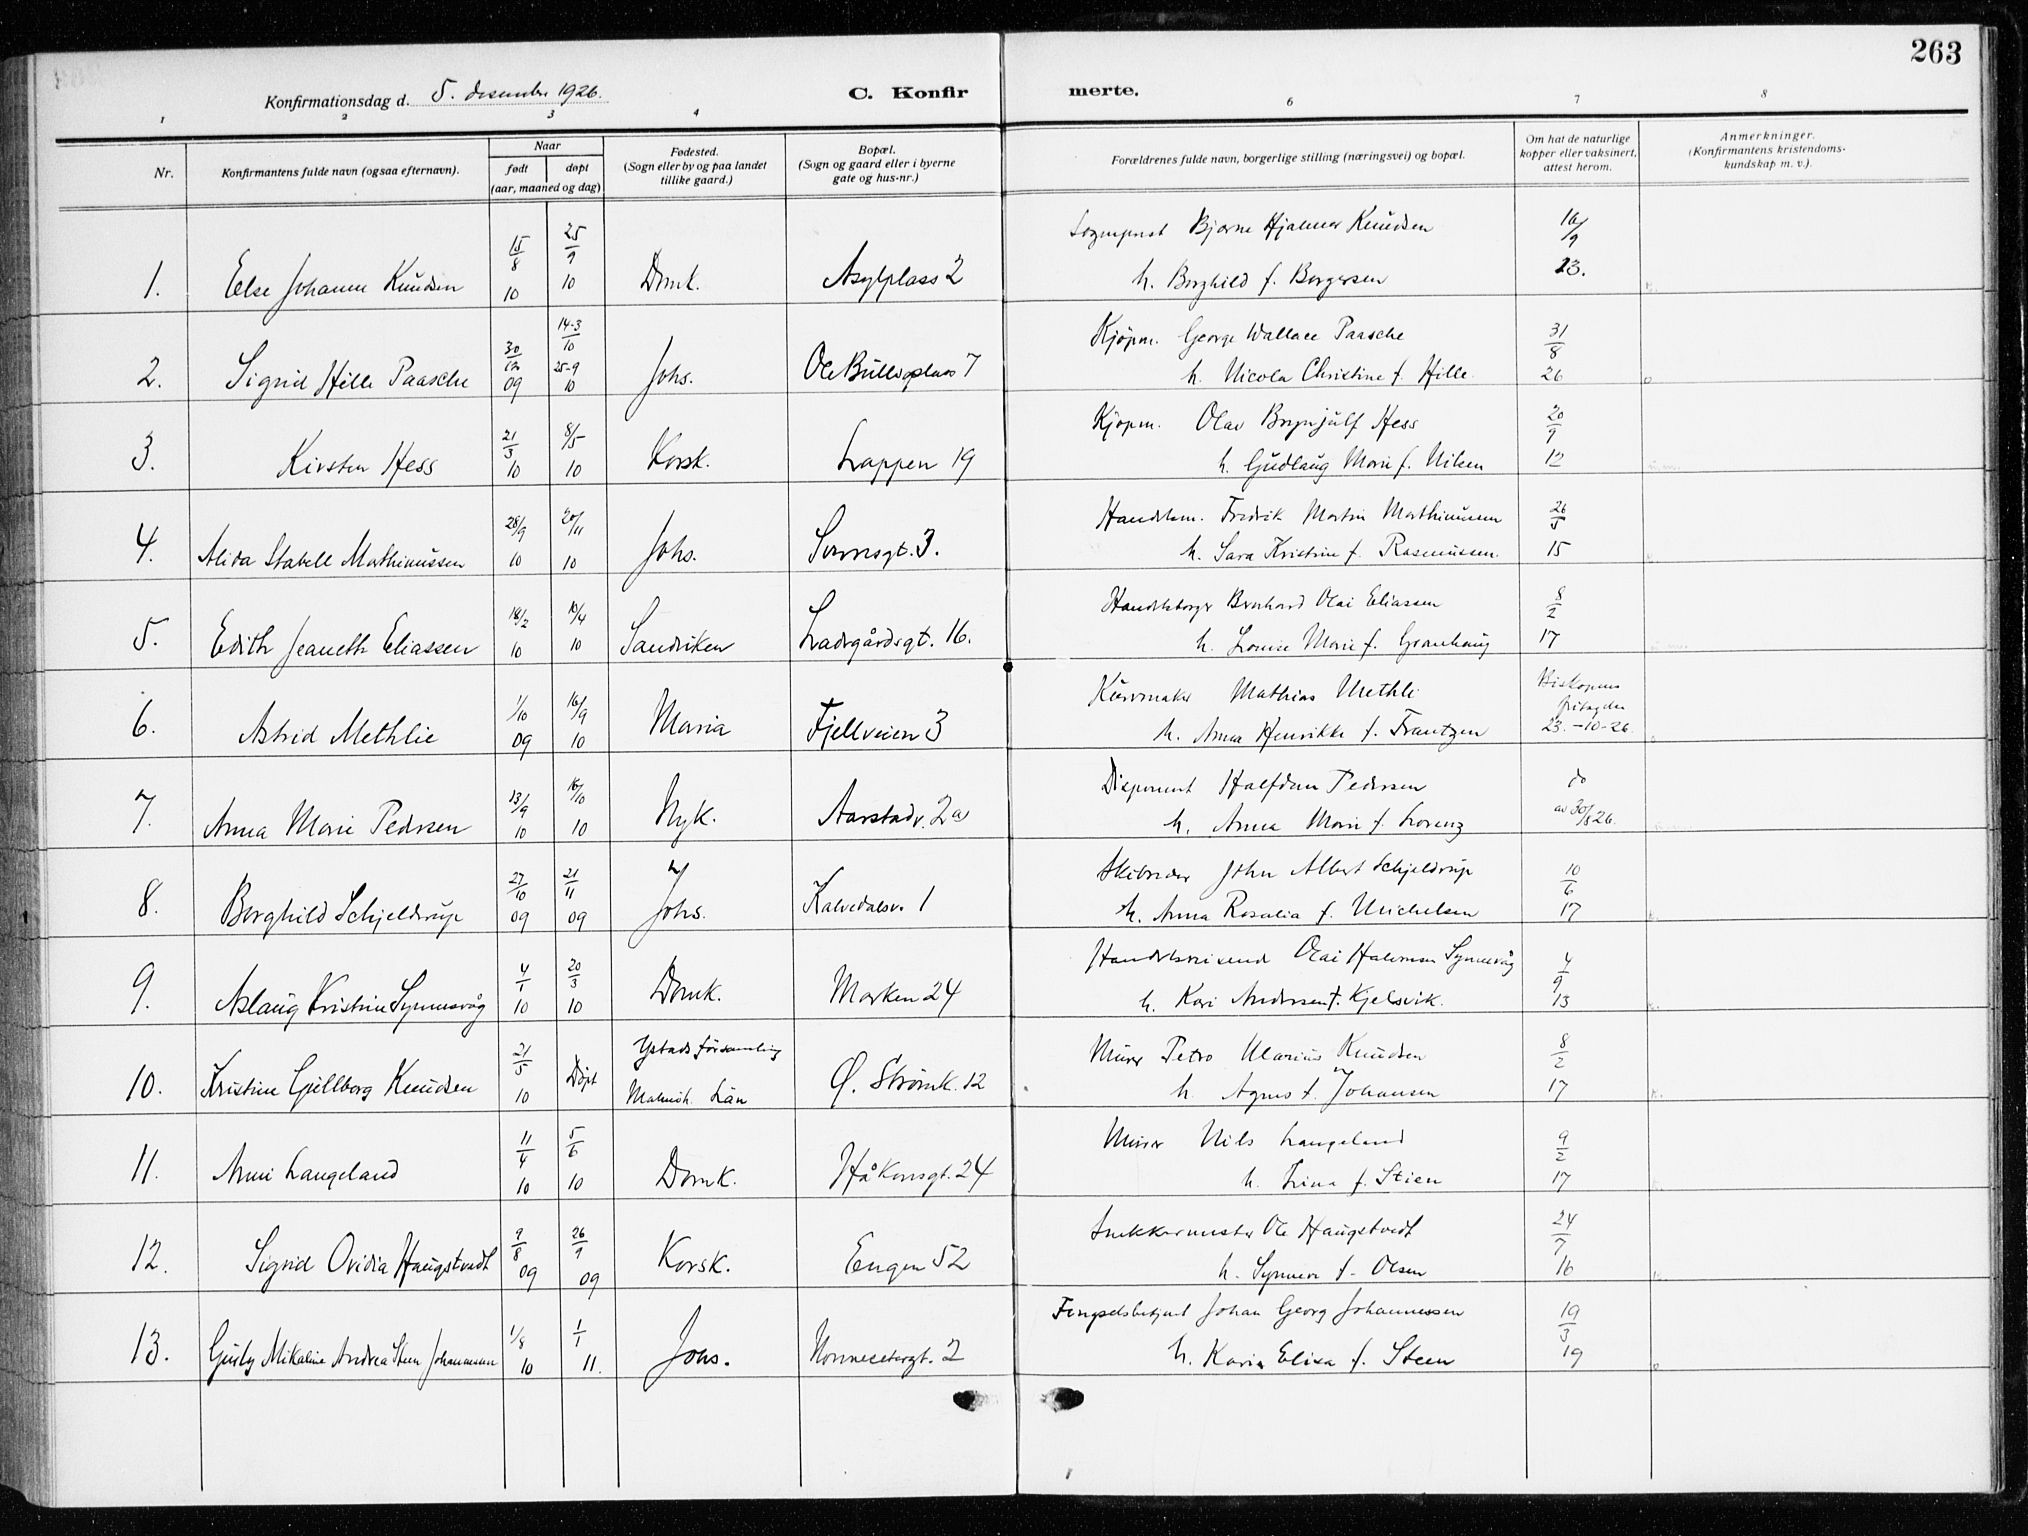 263
Konfirmationsdag d. 5. desember 1926.
C. Konfirmerte.
1 2 3 4 6 7 8
Nr.
Konfirmantens fulde navn (ogsaa efternavn).
Naar
født døpt
(aar, maaned og dag)
Fødested.
(Sogn eller by og paa landet
tillike gaard.)
Bopæl.
(Sogn og gaard eller i byerne
gate og hus-nr.)
Forældrenes fulde navn, borgerlige stilling (næringsvei) og bopæl.
Om hat de naturlige
kopper eller vaksinert,
attest herom.
Anmerkninger.
(Konfirmantens kristendoms-
kundskap m. v.).
1. Else Johanne Knudsen 15/8 10 25/9 10 Domk. Asylplass 2
Sogneprest Bjarne Hjalmar Knudsen 16/9
h. Borghild f. Borgersen 23.
2. Sigrid Hille Paasche 30/12 09 14-3/10 25-9 10 Johs. Ole Bullsplass 7
Kjøpm. George Wallace Paasche 31/8
h. Nicola Christine f. Hille 26
3. Kirsten Hess 21/3 10 8/5 10 Korsk. Lappen 19
Kjøpm. Olav Brynjulf Hess 20/9
h. Gudlaug Marie f. Nilsen 12
4. Alida Stabell Mathiuussen 28/9 10 20/11 10 Johs. 3.
Handelsm. Fredrik Martin Mathiuussen 26/5
h. Sara Kristine f. Rasmussen. 15
5. Edith Jeaneth Eliassen 18/2 10 10/4 10 Sandviken Ladegårdsgt. 16.
Handelsborger Bernhard Olai Eliassen 8/2
h. Louise Marie f. Granhaug 17
6. Astrid Methlie 1/10 09 16/9 10 Maria Fjellveien 3
Kurvmaker Mathias Methli Biskopens
fritagelse
h. Anna Henrikke f. Frantzen 23.-10-26.
7. Anna Marie Pedersen 13/9 10 16/10 10 Nyk. Aarstadv. 2a
Disponent Halfdan Pedersen do
h. Anna Marie f. Lorenz av 30/8 26.
8. Borghild Schjeldrup 27/10 09 21/11 09 Johs. Kalvedalsv. 1
Skibsreder John Albert Schjeldrup 10/6
h. Anna Rosalia f. Michelsen 17
9. Aslaug Kristine Synnevåg 4/1 10 20/3 10 Domk. Marken 24
Handelsreisende Olai Synnevåg 4/9
h. Kari Andersen f. Kjelsvik. 13
10. Kristine Gullborg Knudsen 21/5 10 Døpt Ystads församling
Malmöh. Län Ø. Strømk. 12
Murer Petro Marius Knudsen 8/2
h. Agnes f. Johansen 17
11. Anni Langeland 11/4 10 5/6 10 Domk. Håkonsgt. 24
Murer Nils Langeland 9/2
h. Lina f. Stien 17
12. Sigrid Ovidia Haugstvedt 9/8 09 26/9 09 Korsk. Engen 52
Snekkermester Ole Haugstvedt 24/7
h. Synneve f. Olsen 16
13. Gusly Mikaline Andrea Steen Johannessen 1/8 10 1/1 11. Johs. Nonnesetergt. 2
Fengselsbetjent Johan Georg Johannessen 19/3
h. Karin Elisa f. Steen 19